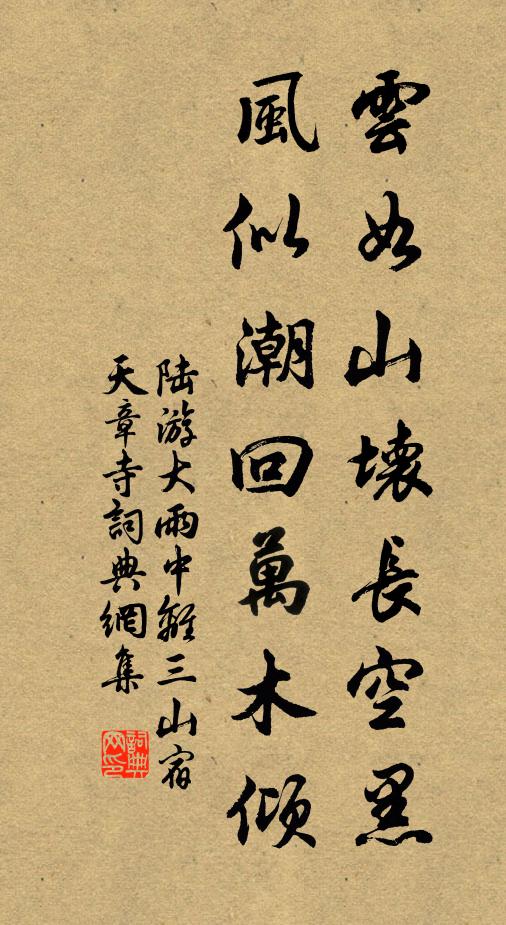 雲如山壞長空黑
風似潮回萬木傾
陸游大雨中離三山宿
天章寺詞典網集
詞典网印